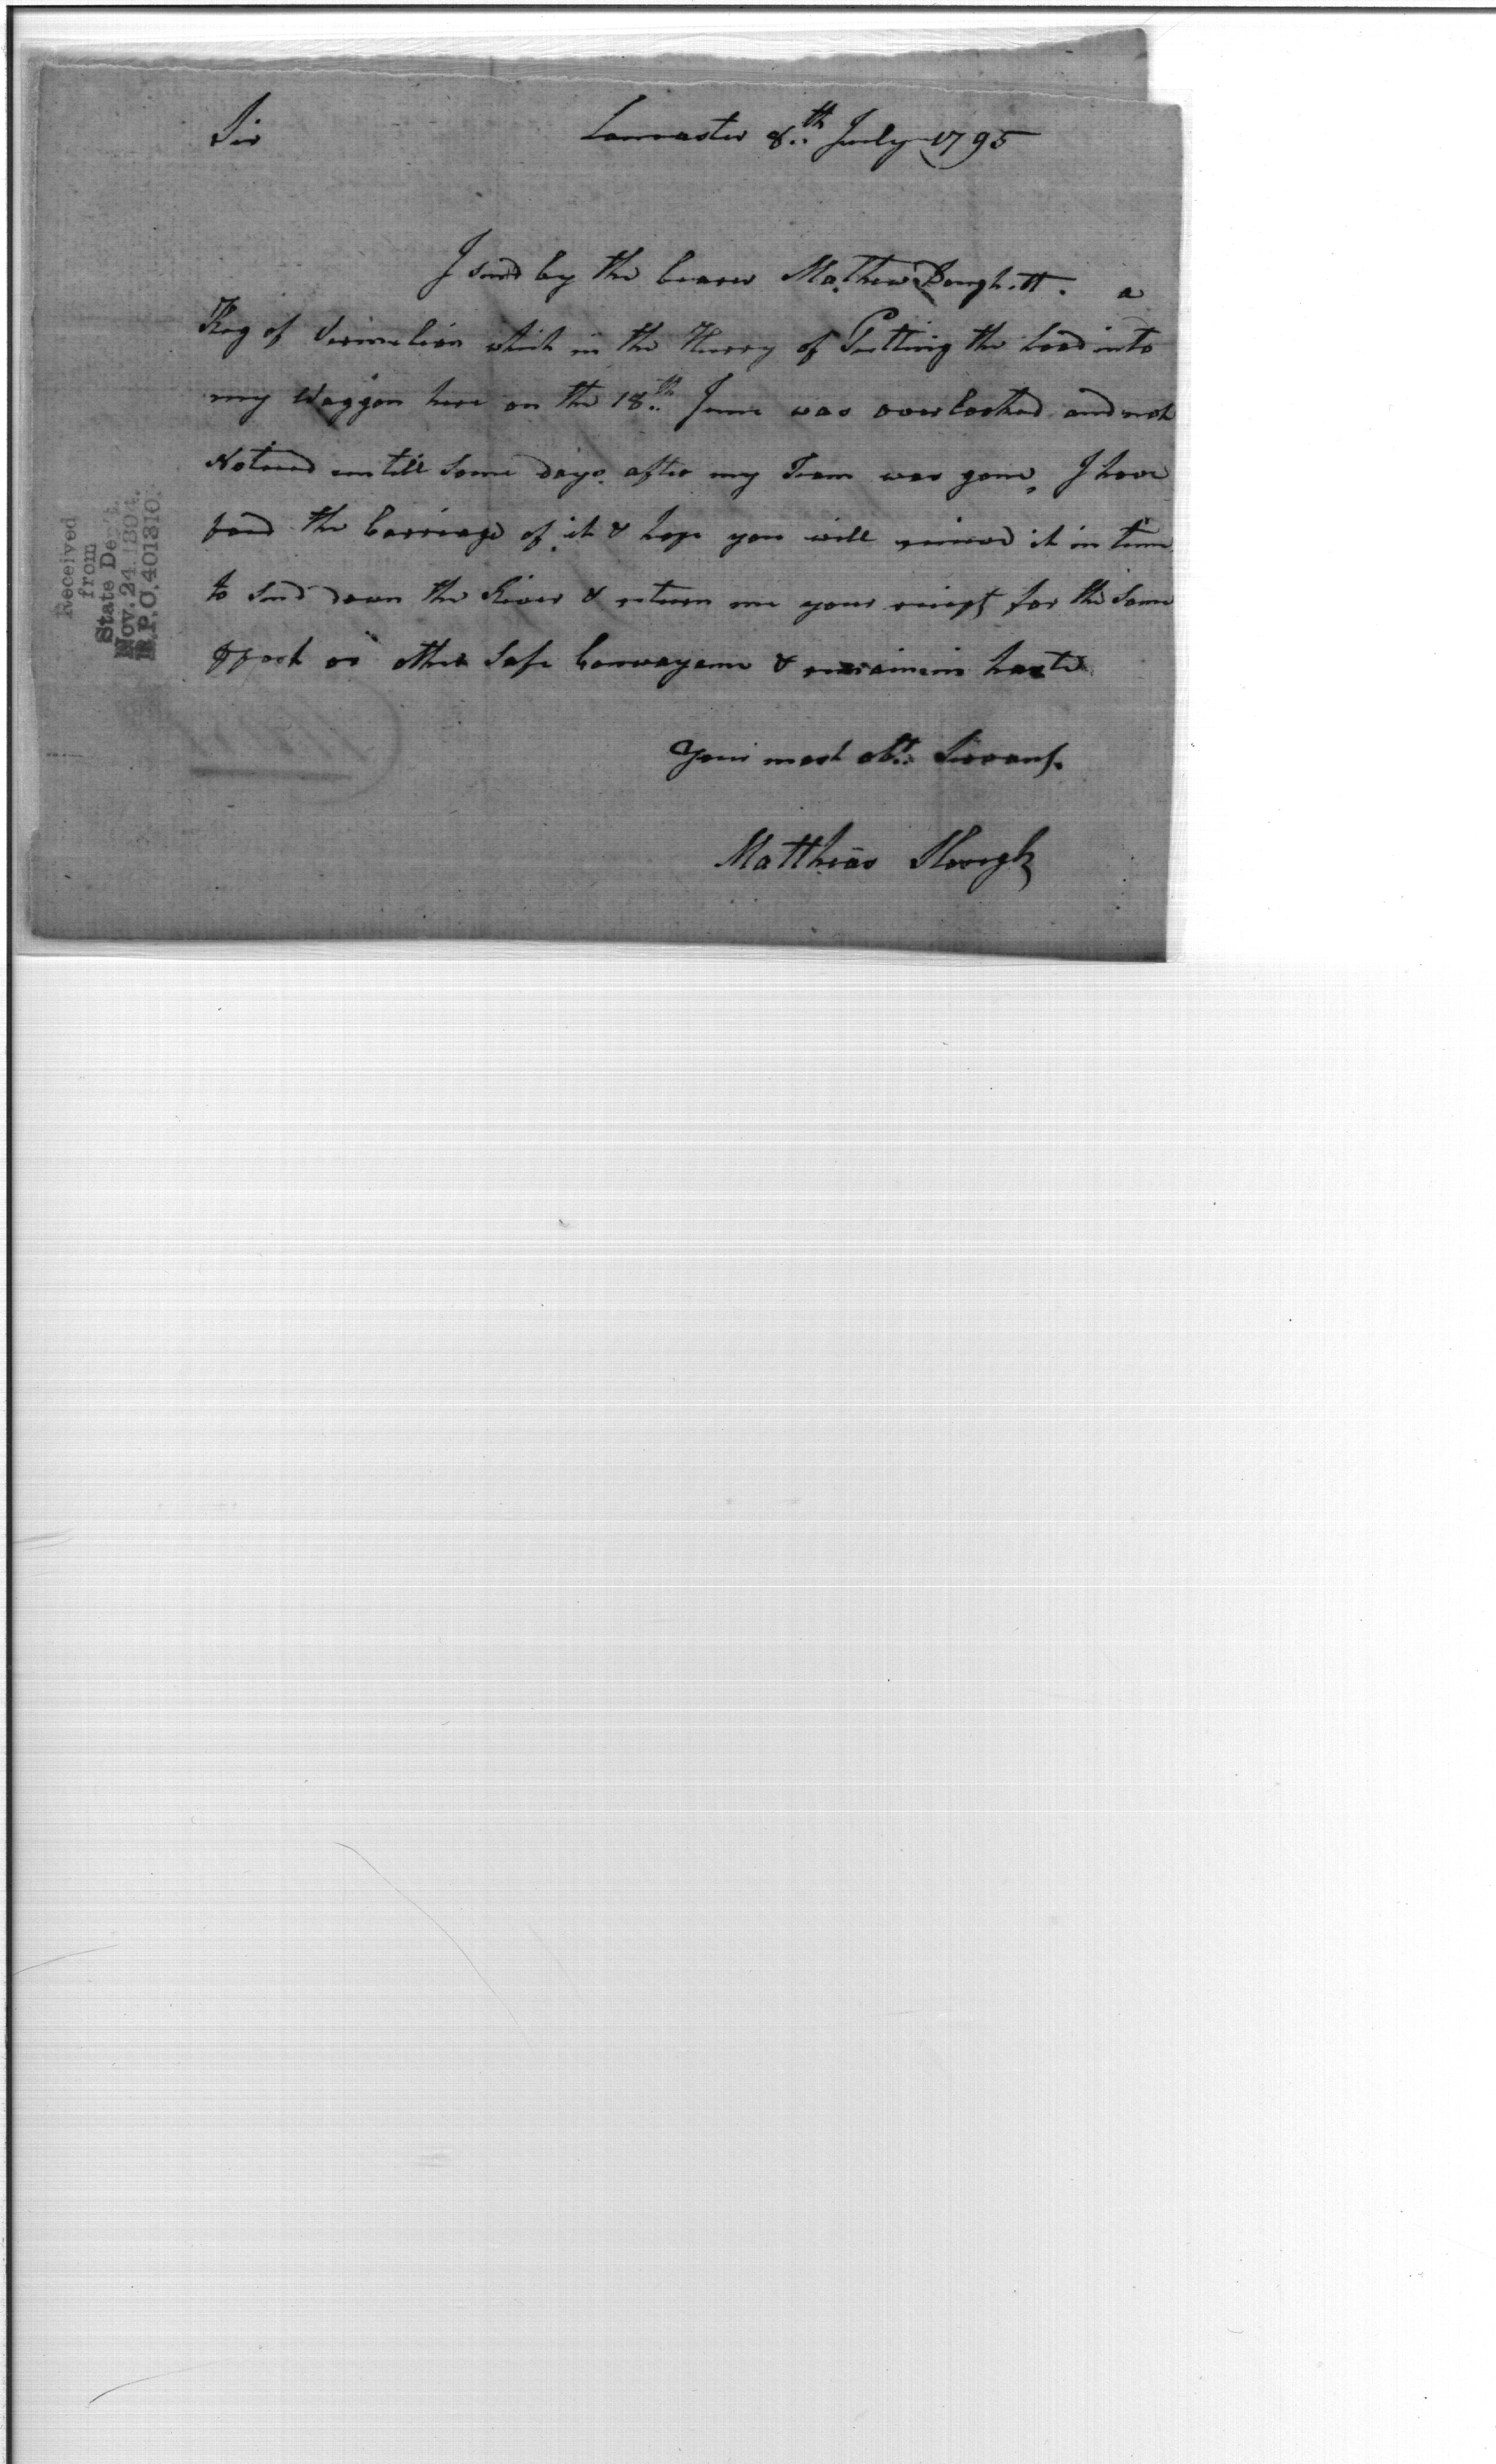 Sir Lancaster 8th July 1795
I send by the bearer Mathew a
Keg of Vermelion which in the Hurry of Putting the load into
my Waggon here on the 18th June was overlooked and not
Noticed untill some days after my Team was gone, I have
paid the Carriage of it & hope you will receive it in time
to send down the River & return me your receipt for the same
post or other safe Convayance & remain in haste
Your most obt. Servant.
Matthias Slough
Received
from
State Dep't.
Nov. 24 1894.
R.P.O. 401310.